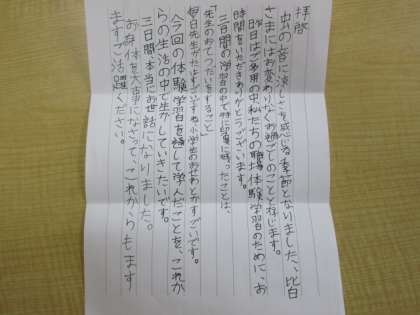 拝啓
虫の音に涼しさを感じる季節となりました、皆
さまにはお変わりなくお過ごしのことと存じます。
昨日はご多用の中私たちの職場体験学習のために、お
時間をいただきありがとうございます。
三日間の学習の中で特に印象に残ったことは、
「先生のおてつだいをすること」
毎日先生がたはすごいですね小学生のおせわとかすごいです。
今回の体験学習を通して学んだことを、これか
らの生活の中で生かしていきたいです。
三日間本当にお世話になりました。
お身体を大事になさって、これからもます
ますご活躍ください。